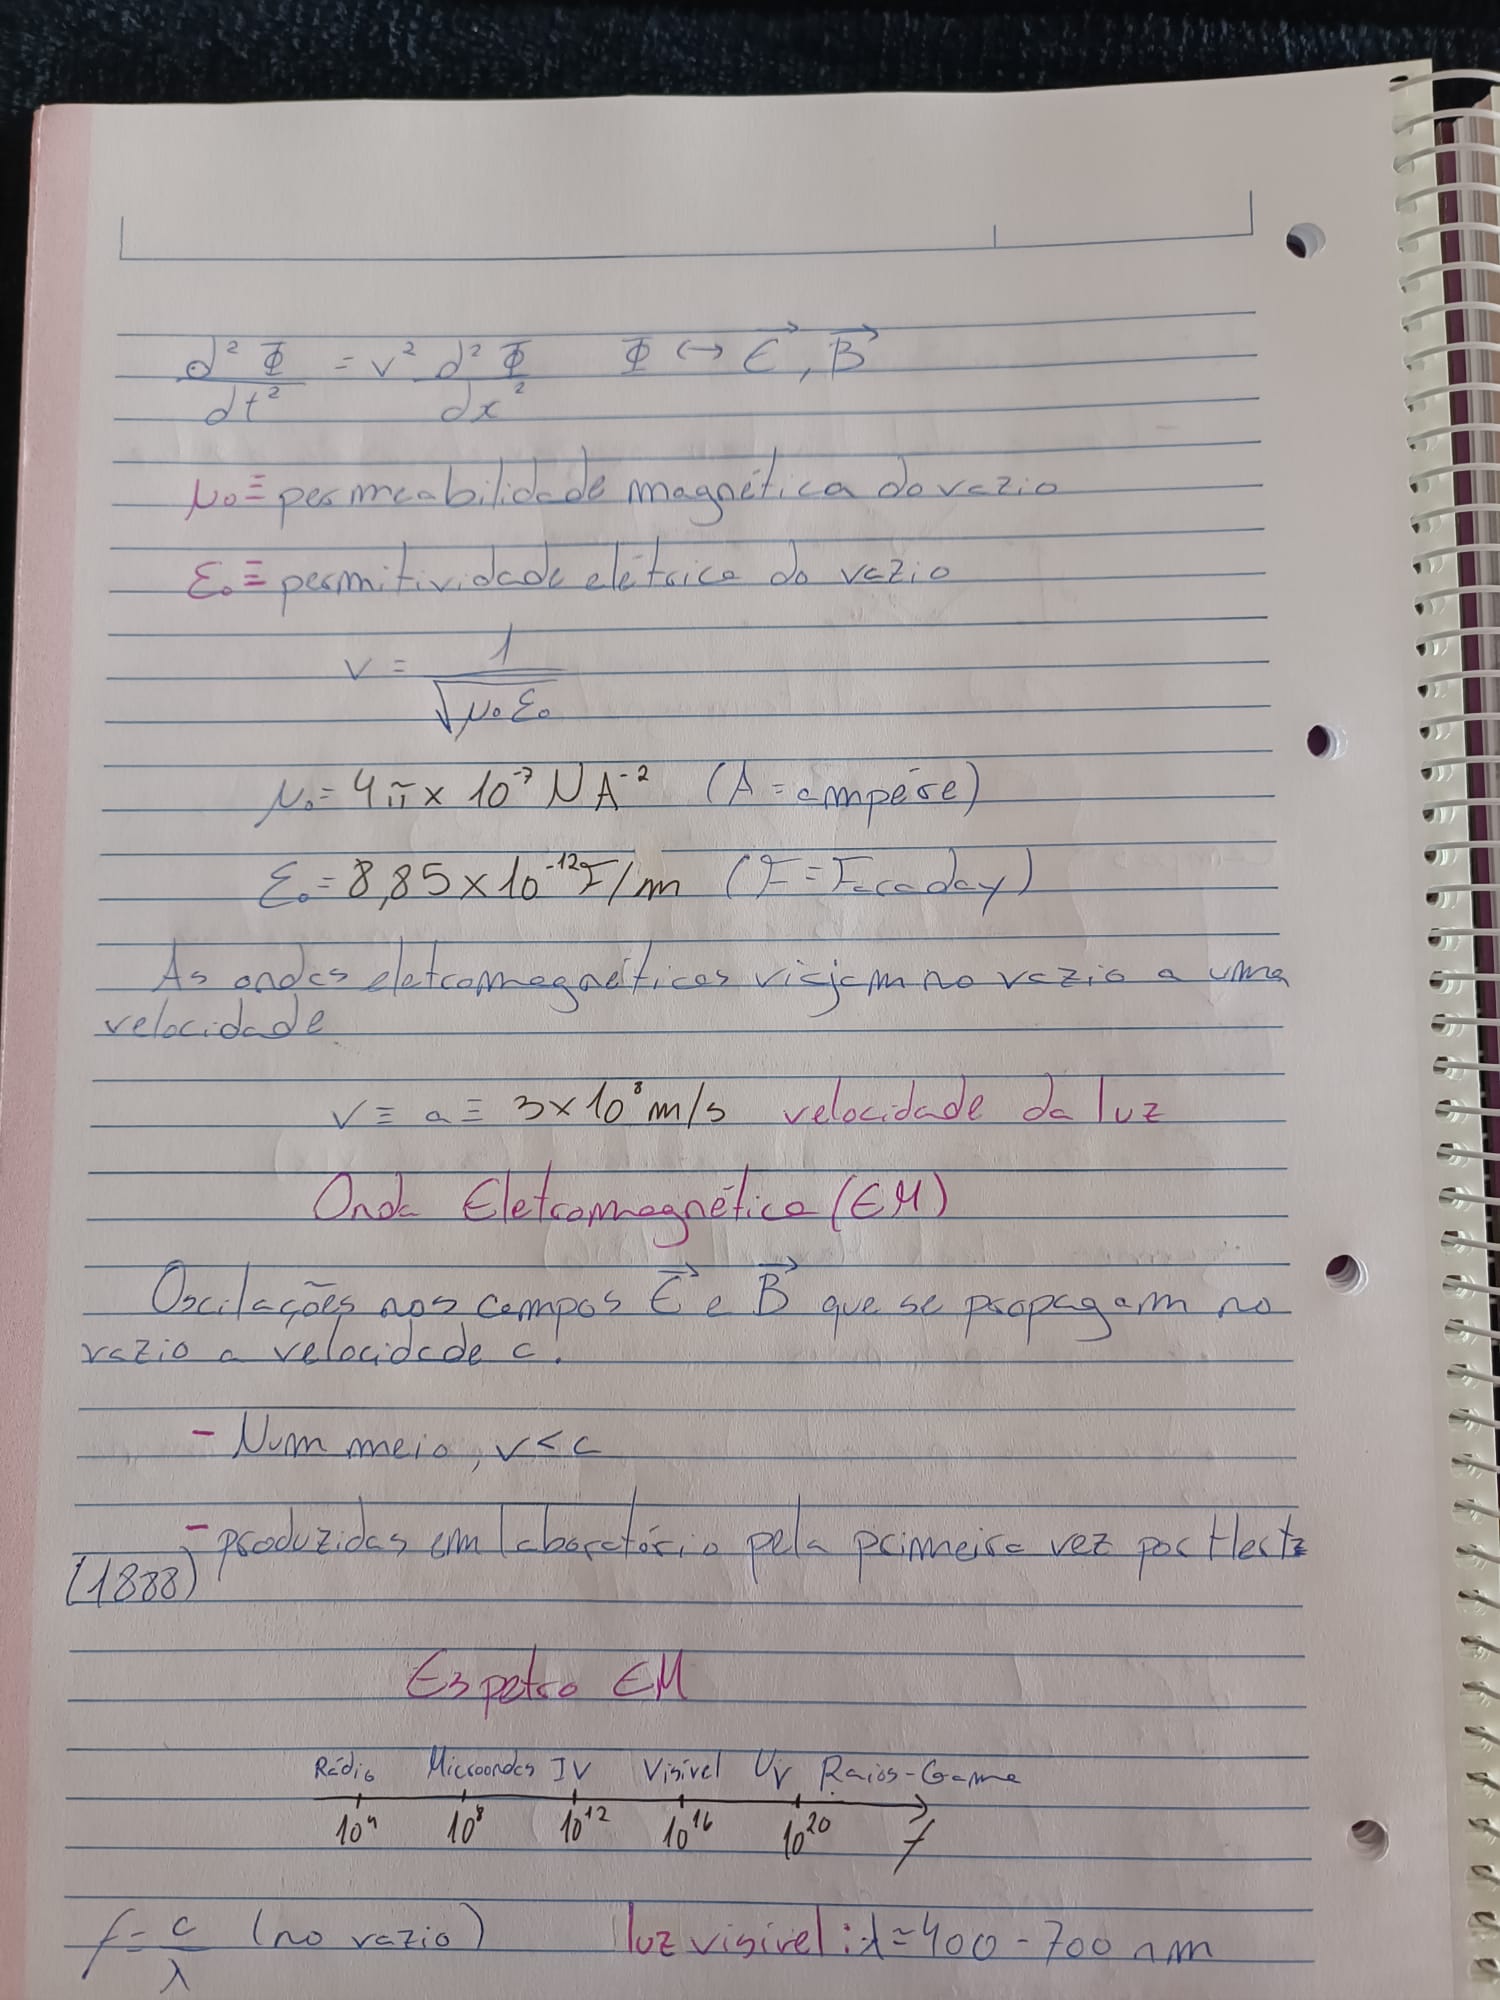 d²Φ/dt² = v² d²Φ/dx²   Φ ↔ E⃗, B⃗
μ₀ ≡ permeabilidade magnética do vazio
ε₀ ≡ permitividade elétrica do vazio
v = 1/√μ₀ε₀
μ₀ = 4π × 10⁻⁷ N A⁻² (A = ampére)
ε₀ = 8,85 × 10⁻¹² F/m (F = Faraday)
As ondas eletromagnéticas viajam no vazio a uma
velocidade
v ≡ c ≡ 3 × 10⁸ m/s velocidade da luz
Onda Eletromagnética (EM)
Oscilações nos campos E⃗ e B⃗ que se propagam no
vazio a velocidade c.
- Num meio, v < c
- produzidas em laboratório pela primeira vez por Hertz
(1888)
Espetro EM
Rádio Microondas IV Visível UV Raios-Gama
10⁴ 10⁸ 10¹² 10¹⁶ 10²⁰ f
f = c/λ (no vazio)   luz visível: λ ≈ 400 - 700 nm